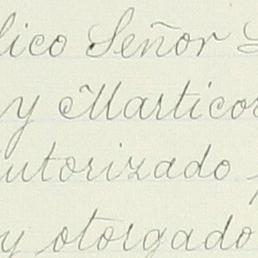 lico Señor
y Marticor
utorizado
y otorgado